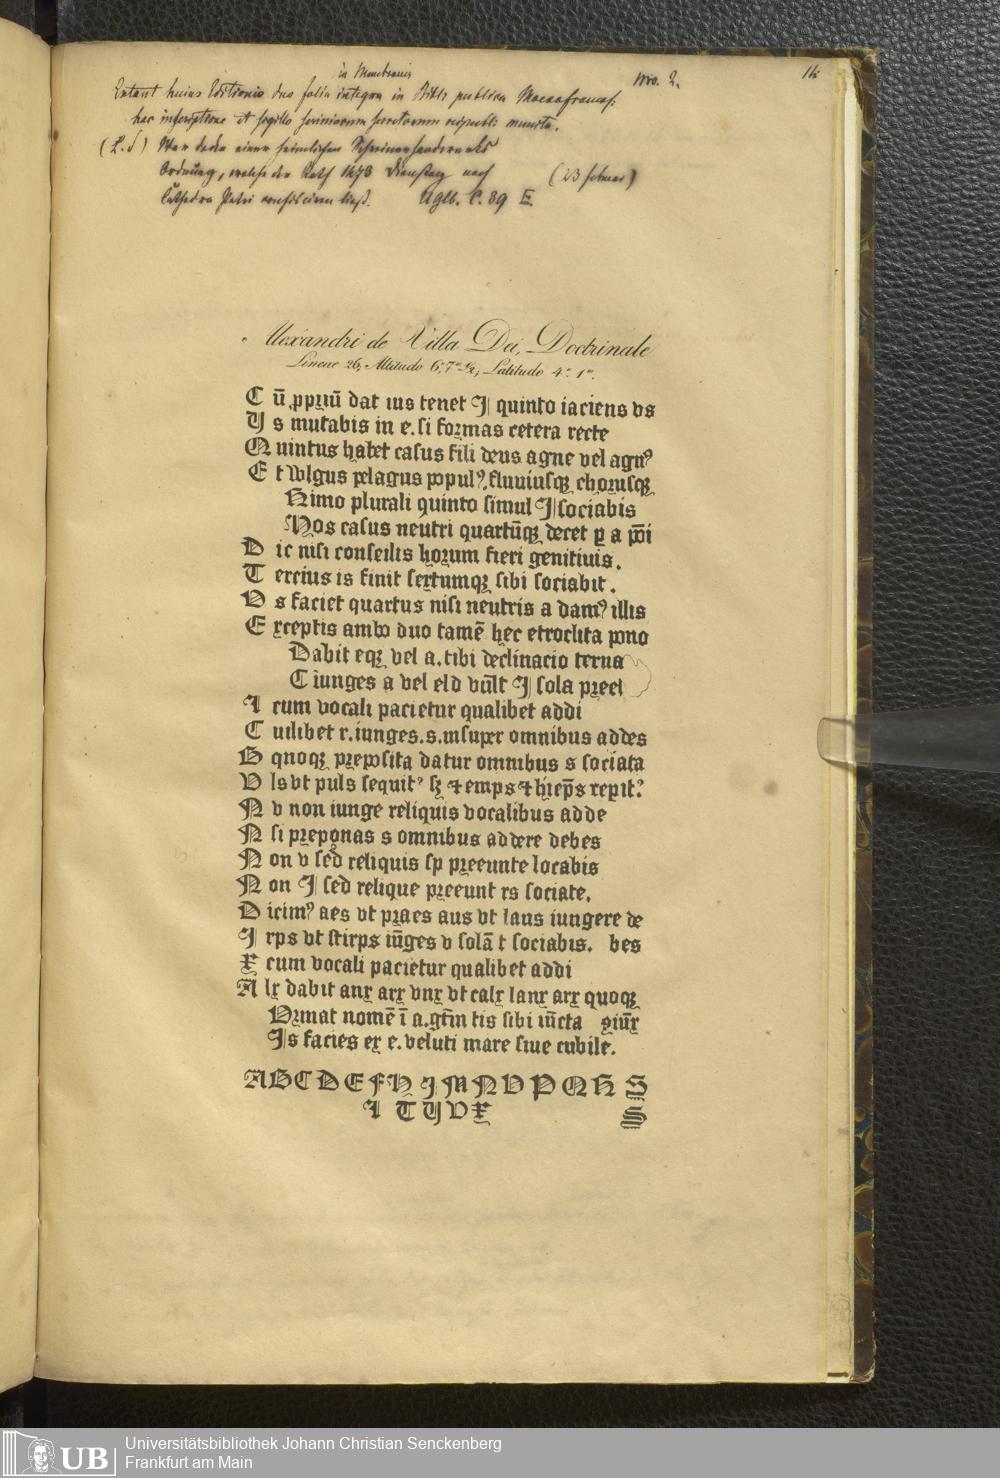 in Membranis
Nro. 2.
14
Extant huius Editionis duo folia integra in Bibl: publica Moenofrancof:
hac inscriptione et sigillo scriniorum secretorum reipubl: munita.
(L. S) War dedn einer heimlichen
Ordnung, welche der Rath 1473 Dienstag nach (23 februar)
Cathedra Petri confisciren ließ. Uglb. C. 89 E.
Alexandri de Villa Dei, Doctrinale
Lineae 26, Altitudo 6", 7''' ½, Latitudo 4" 1'''.
C ū ꝓpriū dat ius tenet I quinto iaciens vs
U s mutabis in e. si formas cetera recte
Q uintus habet casus fili deus agne vel agnꝰ
E t wlgus pelagus populꝰ. fluuiusqꝫ chorusqꝫ
Primo plurali quinto simul I sociabis
Hos casus neutri quartūqꝫ decet ꝑ a poni
D ic nisi confeilis horum fieri genitiuis.
T ercius is finit sextumqꝫ sibi sociabit.
V s faciet quartus nisi neutris a damꝰ illis
E xceptis ambo duo tamē hec etroclita pono
Dabit eqꝫ vel a. tibi declinacio terna
C iunges a vel eld vūlt I sola preet
I cum vocali pacietur qualibet addi
C uilibet r. iunges. s. insuper omnibus addes
B quoqꝫ preposita datur omnibus s sociata
V ls vt puls sequitʳ sꝫ ⁊ emps ⁊ hiep̄s reperitʳ
N v non iunge reliquis vocalibus adde
N si preponas s omnibus addere debes
N on v sed reliquis sp preeunte locabis
N on I sed relique preeunt rs sociate.
D icimꝰ aes vt praes aus vt laus iungere de
I rps vt stirps iūges v solā t sociabis. bes
X cum vocali pacietur qualibet addi
A lx dabit anx arx vnx vt calx lanx arx quoqꝫ
Primat nomē ī a. gtīn tis sibi iūcta giūx
Is facies ex e. veluti mare siue cubile.
A B C D E F H I M N V P Q R S
I T U V X S
UB Universitätsbibliothek Johann Christian Senckenberg
Frankfurt am Main